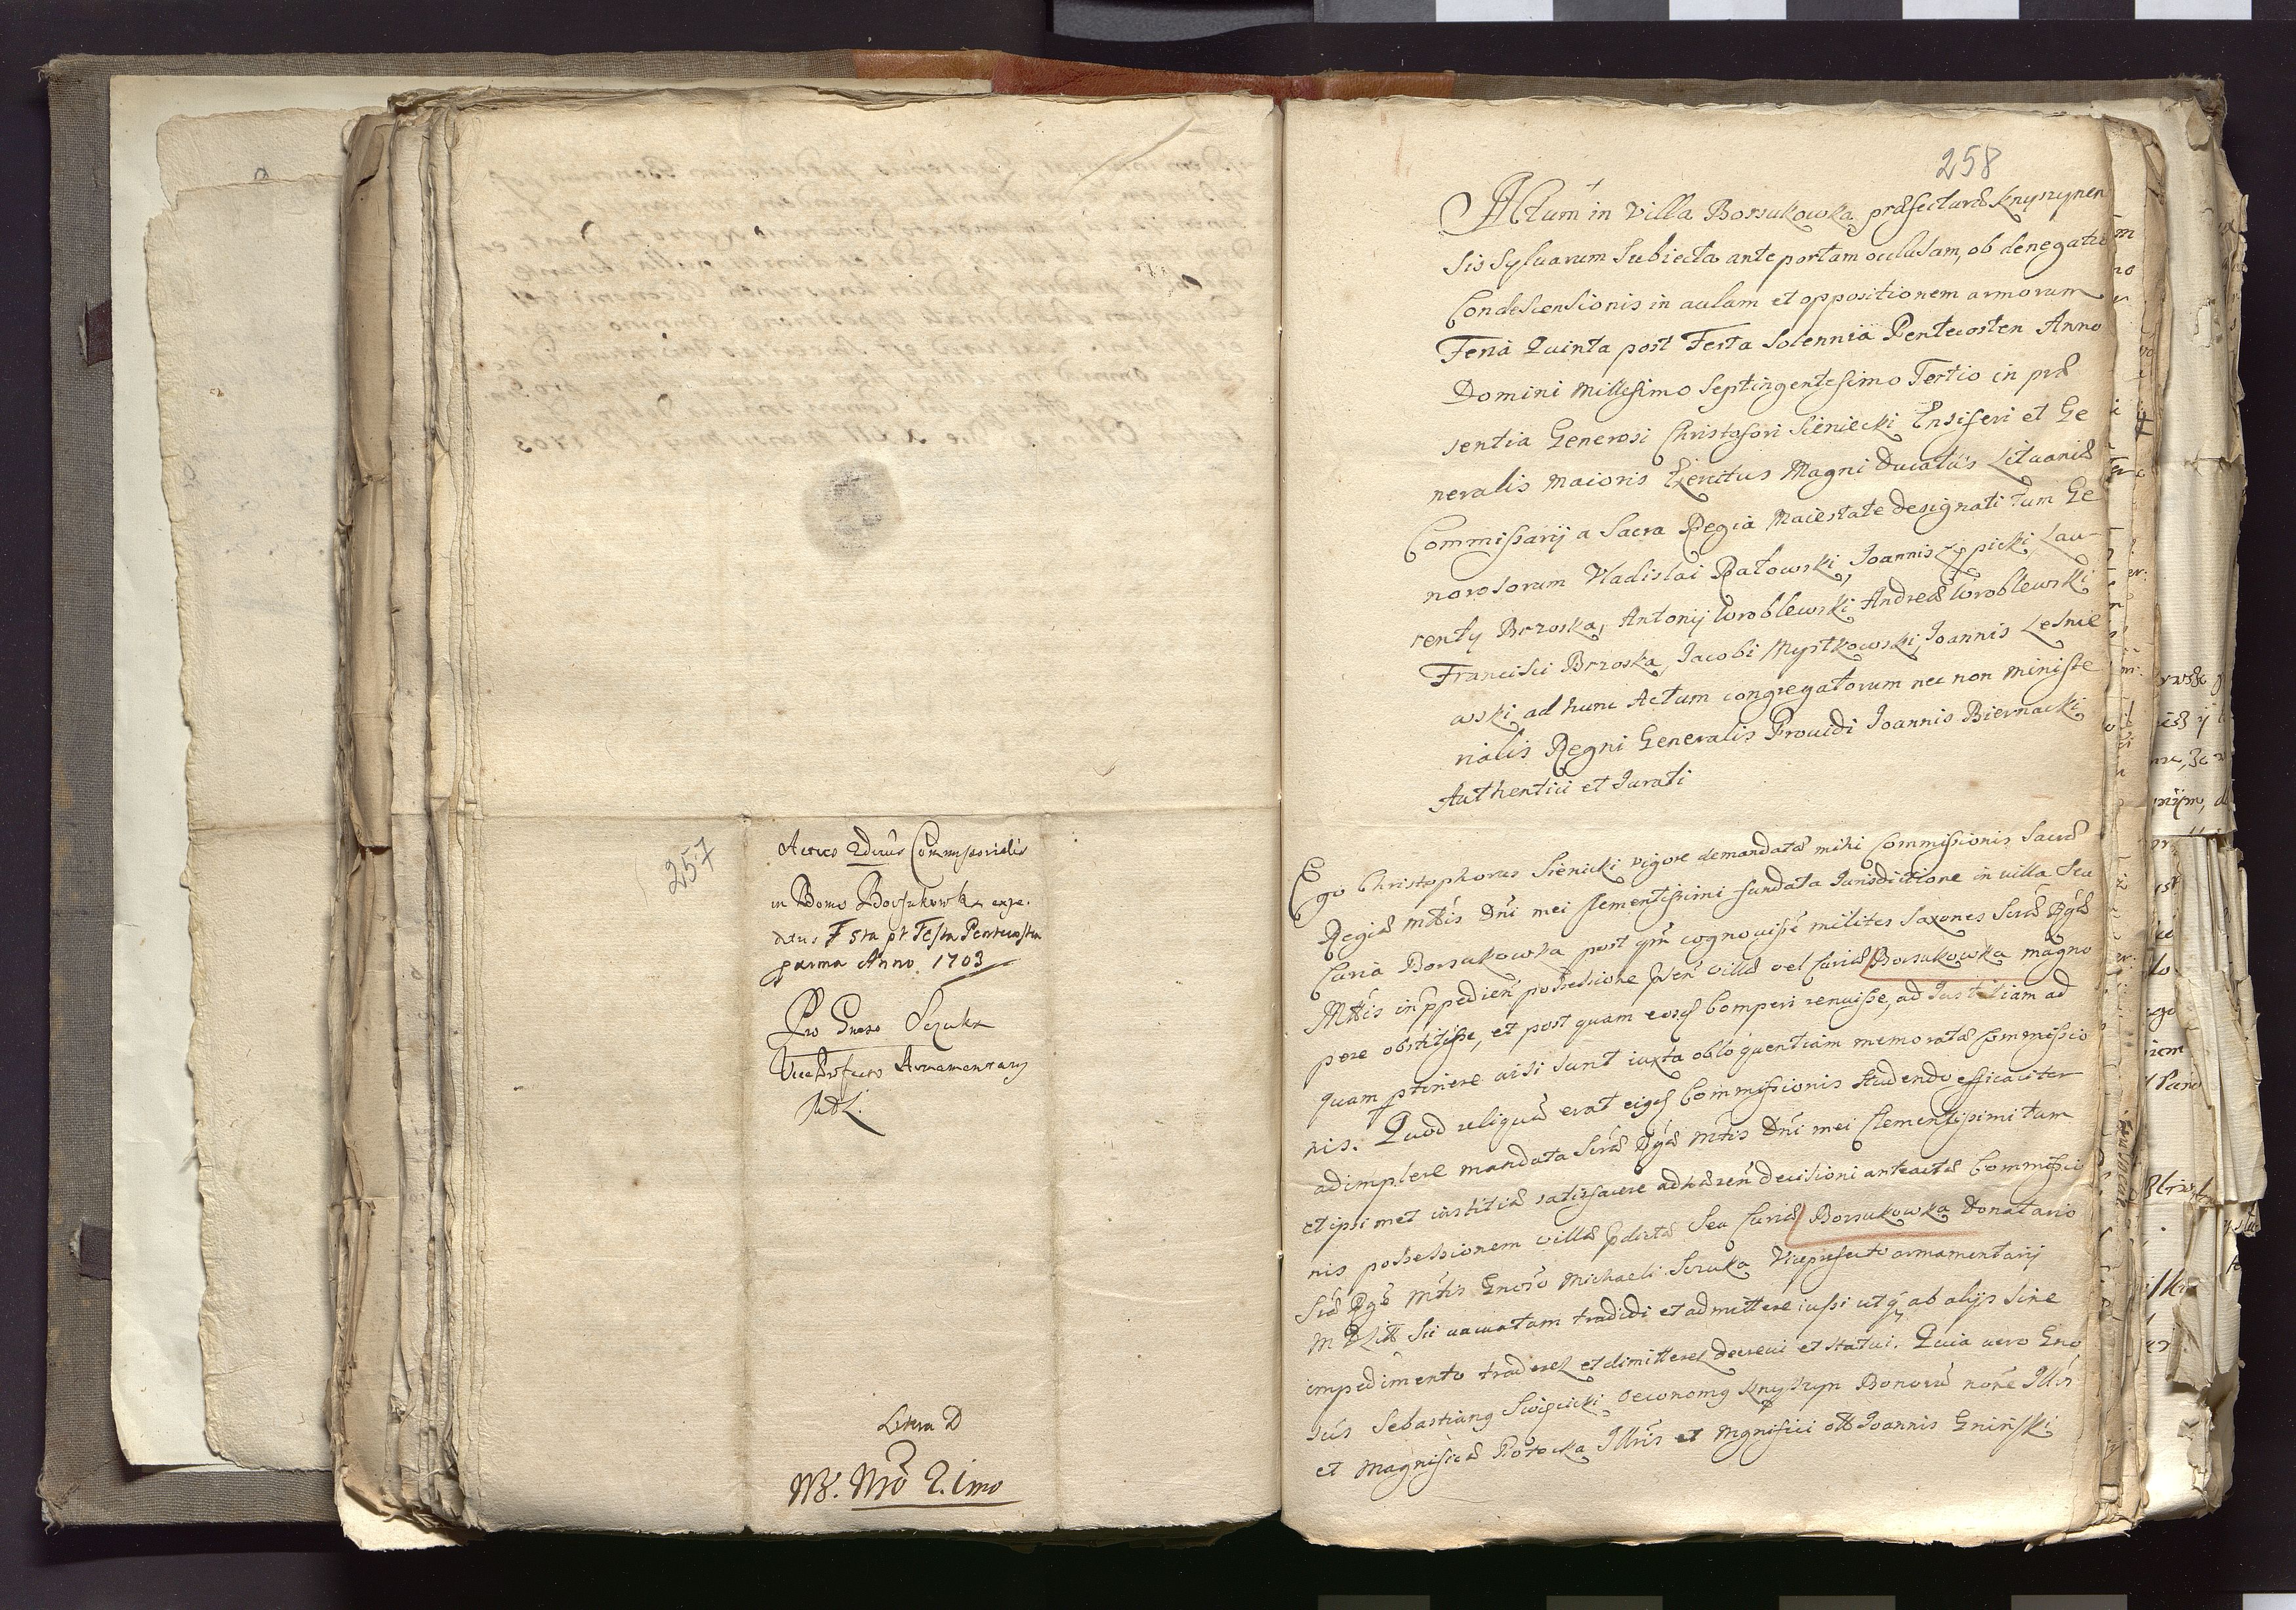 257
in Bonis Borsukowka expe.
ditus F 5ta pt Festa Pentecostes
Anno 1703
Pro Gnoso Sczuka
Vice Prefecto Armamentary
MDL.
Litera D
NB. Nro 2.
258
Actum in Villa Borsukowka præfecturæ Knyszynen
sis Sylvarum Subiecta ante portam occlusam, ob denegatio
Condescensionis in aulam et oppositionem armorum
Feria Quinta post Festa Solennia Pentecosten Anno
Domini Millesimo Septingentesimo Tertio in præ
sentia Generosi Christofori Sieniecki Ensiferi et Ge
neralis maioris Exercitus Magni Ducatus Lituaniæ
Commissarij a Sacra Regia Maiestate designati tum Ge
norosorum Vladislai Ratowski, Joannis Lau-
renty Brzoska, Antonij Wroblewski Andreæ Wroblewski
Francisci Brzoska, Jacobi Mystkowski, Joannis Lesnie
wski ad hunc Actum congregatorum nec non ministe
rialis Regni Generalis Providi Joannis Biernacki
Authentici et Jurati
Ego Christophorus Sienicki vigore demandatæ mihi Commissionis Sacræ
Regiæ Mttis Dni mei clementissimi fundata Jurisdictione in villa Seu
Curia Borsukowka post qm cognovisse milites Saxones Scræ Rgæ
Mttis possessione villæ vel Curiæ Borsukowka magno
pere obstitisse, et post quam eosq comperi renuisse, ad Justitiam ad
quam ptinere visi sunt iuxta obloquentiam memoratæ Commissio
nis. Quod reliquū erat eigsq Commissionis studendo efficaciter
adimplere mandata Scræ Rgæ Mttis Dni mei clementissimi tum
et ipsimet iustitiæ satisfacere adhæren decisioni anteactæ Commissio
nis possessionem villæ pdictæ Seu Curiæ Borsukowka Donatario
Sræ Rgæ Mttis Gnoso Michaeli Sczuka Viceprefecto armamentarij
M D Litt Sic vacuatam tradidi et admittere iussi utq ab alijs sine
impedimento traderet et dimitteret decrevi et statui. Quia vero Gno
sus Sebastiang Swięcicki Oeconomg Knyszyn Bonorū noñe Illris
et Magnificæ Potocka Illris et Mgnifici olt Joannis Gniński